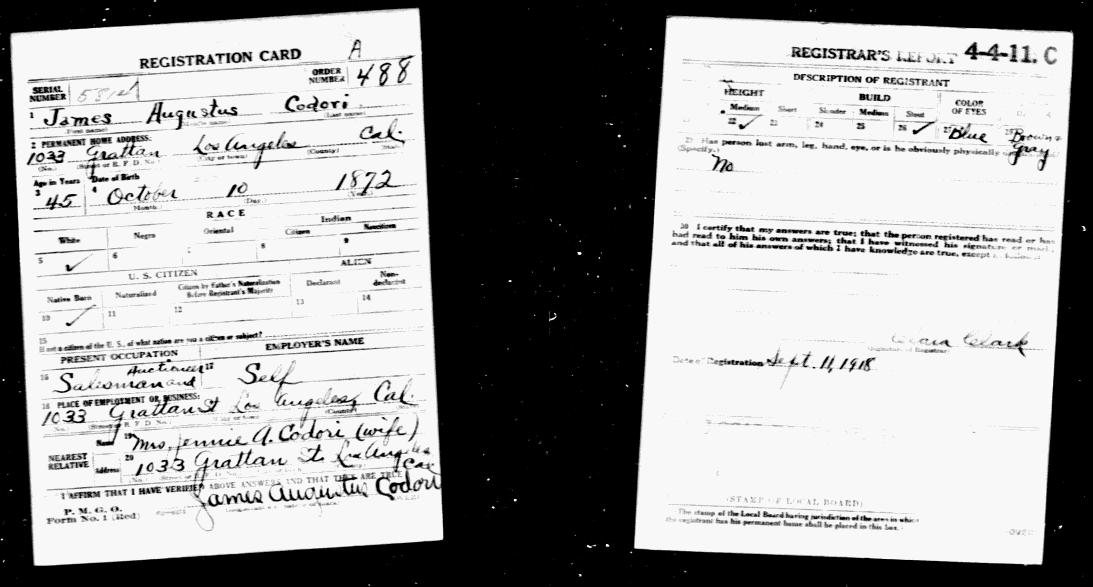 REGISTRATION CARD A
SERIAL NUMBER
ORDER NUMBER 488
1 James Augustus Codori
(First name) (Middle name) (Last name)
2 PERMANENT HOME ADDRESS:
1033 Grattan Los Angeles Cal.
(No.) (Street or R. F. D. No.) (City or town) (County) (State)
Age in Years Date of Birth
3 45 4 October 10 1872
(Month.) (Day.) (Year.)
RACE
White Negro Oriental Indian
Citizen Noncitizen
5 ✓ 6 7 8 9
U. S. CITIZEN ALIEN
Native Born Naturalized Citizen by Father's Naturalization Before Registrant's Majority Declarant Non-declarant
10 ✓ 11 12 13 14
15
If not a citizen of the U. S., of what nation are you a citizen or subject?
PRESENT OCCUPATION EMPLOYER'S NAME
16 Salesman and Auctioneer 17 Self
18 PLACE OF EMPLOYMENT OR BUSINESS:
1033 Grattan St Los Angeles, Cal.
(No.) (Street or R. F. D. No.) (City or town) (County)
NEAREST RELATIVE
Name 19 Mrs. Jennie A. Codori (wife)
Address 20 1033 Grattan St Los Angeles Cal
I AFFIRM THAT I HAVE VERIFIED ABOVE ANSWERS AND THAT THEY ARE TRUE
P. M. G. O.
Form No. 1 (Red)
James Augustus Codori
REGISTRAR'S REPORT 4-4-11. C
DESCRIPTION OF REGISTRANT
HEIGHT BUILD COLOR OF EYES
Medium Short Slender Medium Stout
22 ✓ 23 24 25 26 ✓ 27 Blue 28 Brown & Gray
29 Has person lost arm, leg, hand, eye, or is he obviously physically
(Specify.)
No
30 I certify that my answers are true; that the person registered has read or has
had read to him his own answers; that I have witnessed his signature or mark,
and that all of his answers of which I have knowledge are true, except as follows:
Clara Clark
(Signature of Registrar)
Date of Registration Sept. 11, 1918
(STAMP OF LOCAL BOARD)
The stamp of the Local Board having jurisdiction of the area in which
the registrant has his permanent home shall be placed in this box.